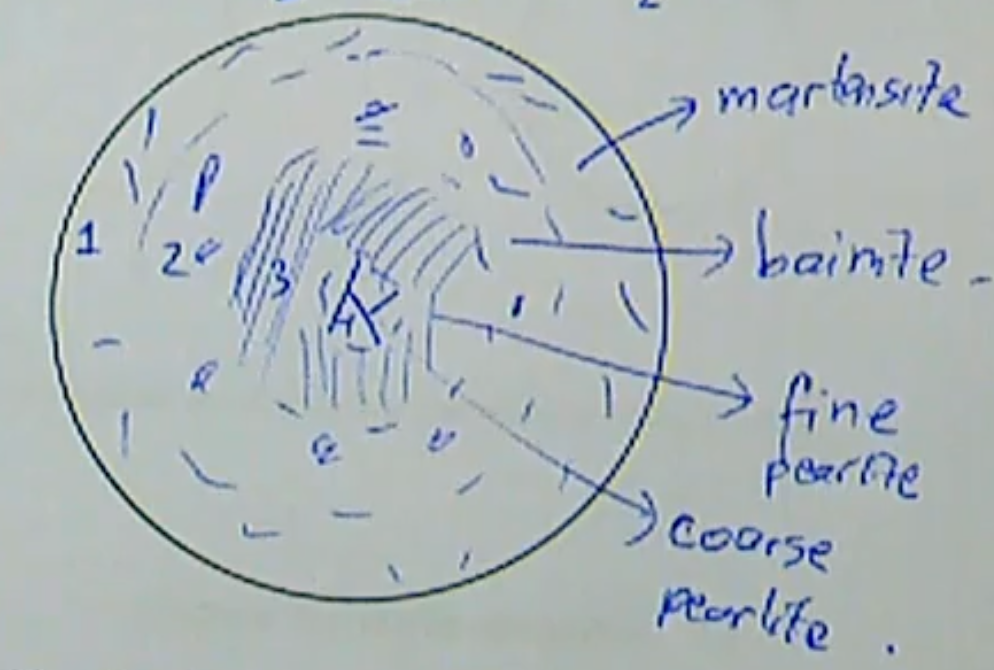 2
martensite
1
2
bainite
3
4
fine
pearlite
coarse
pearlite .